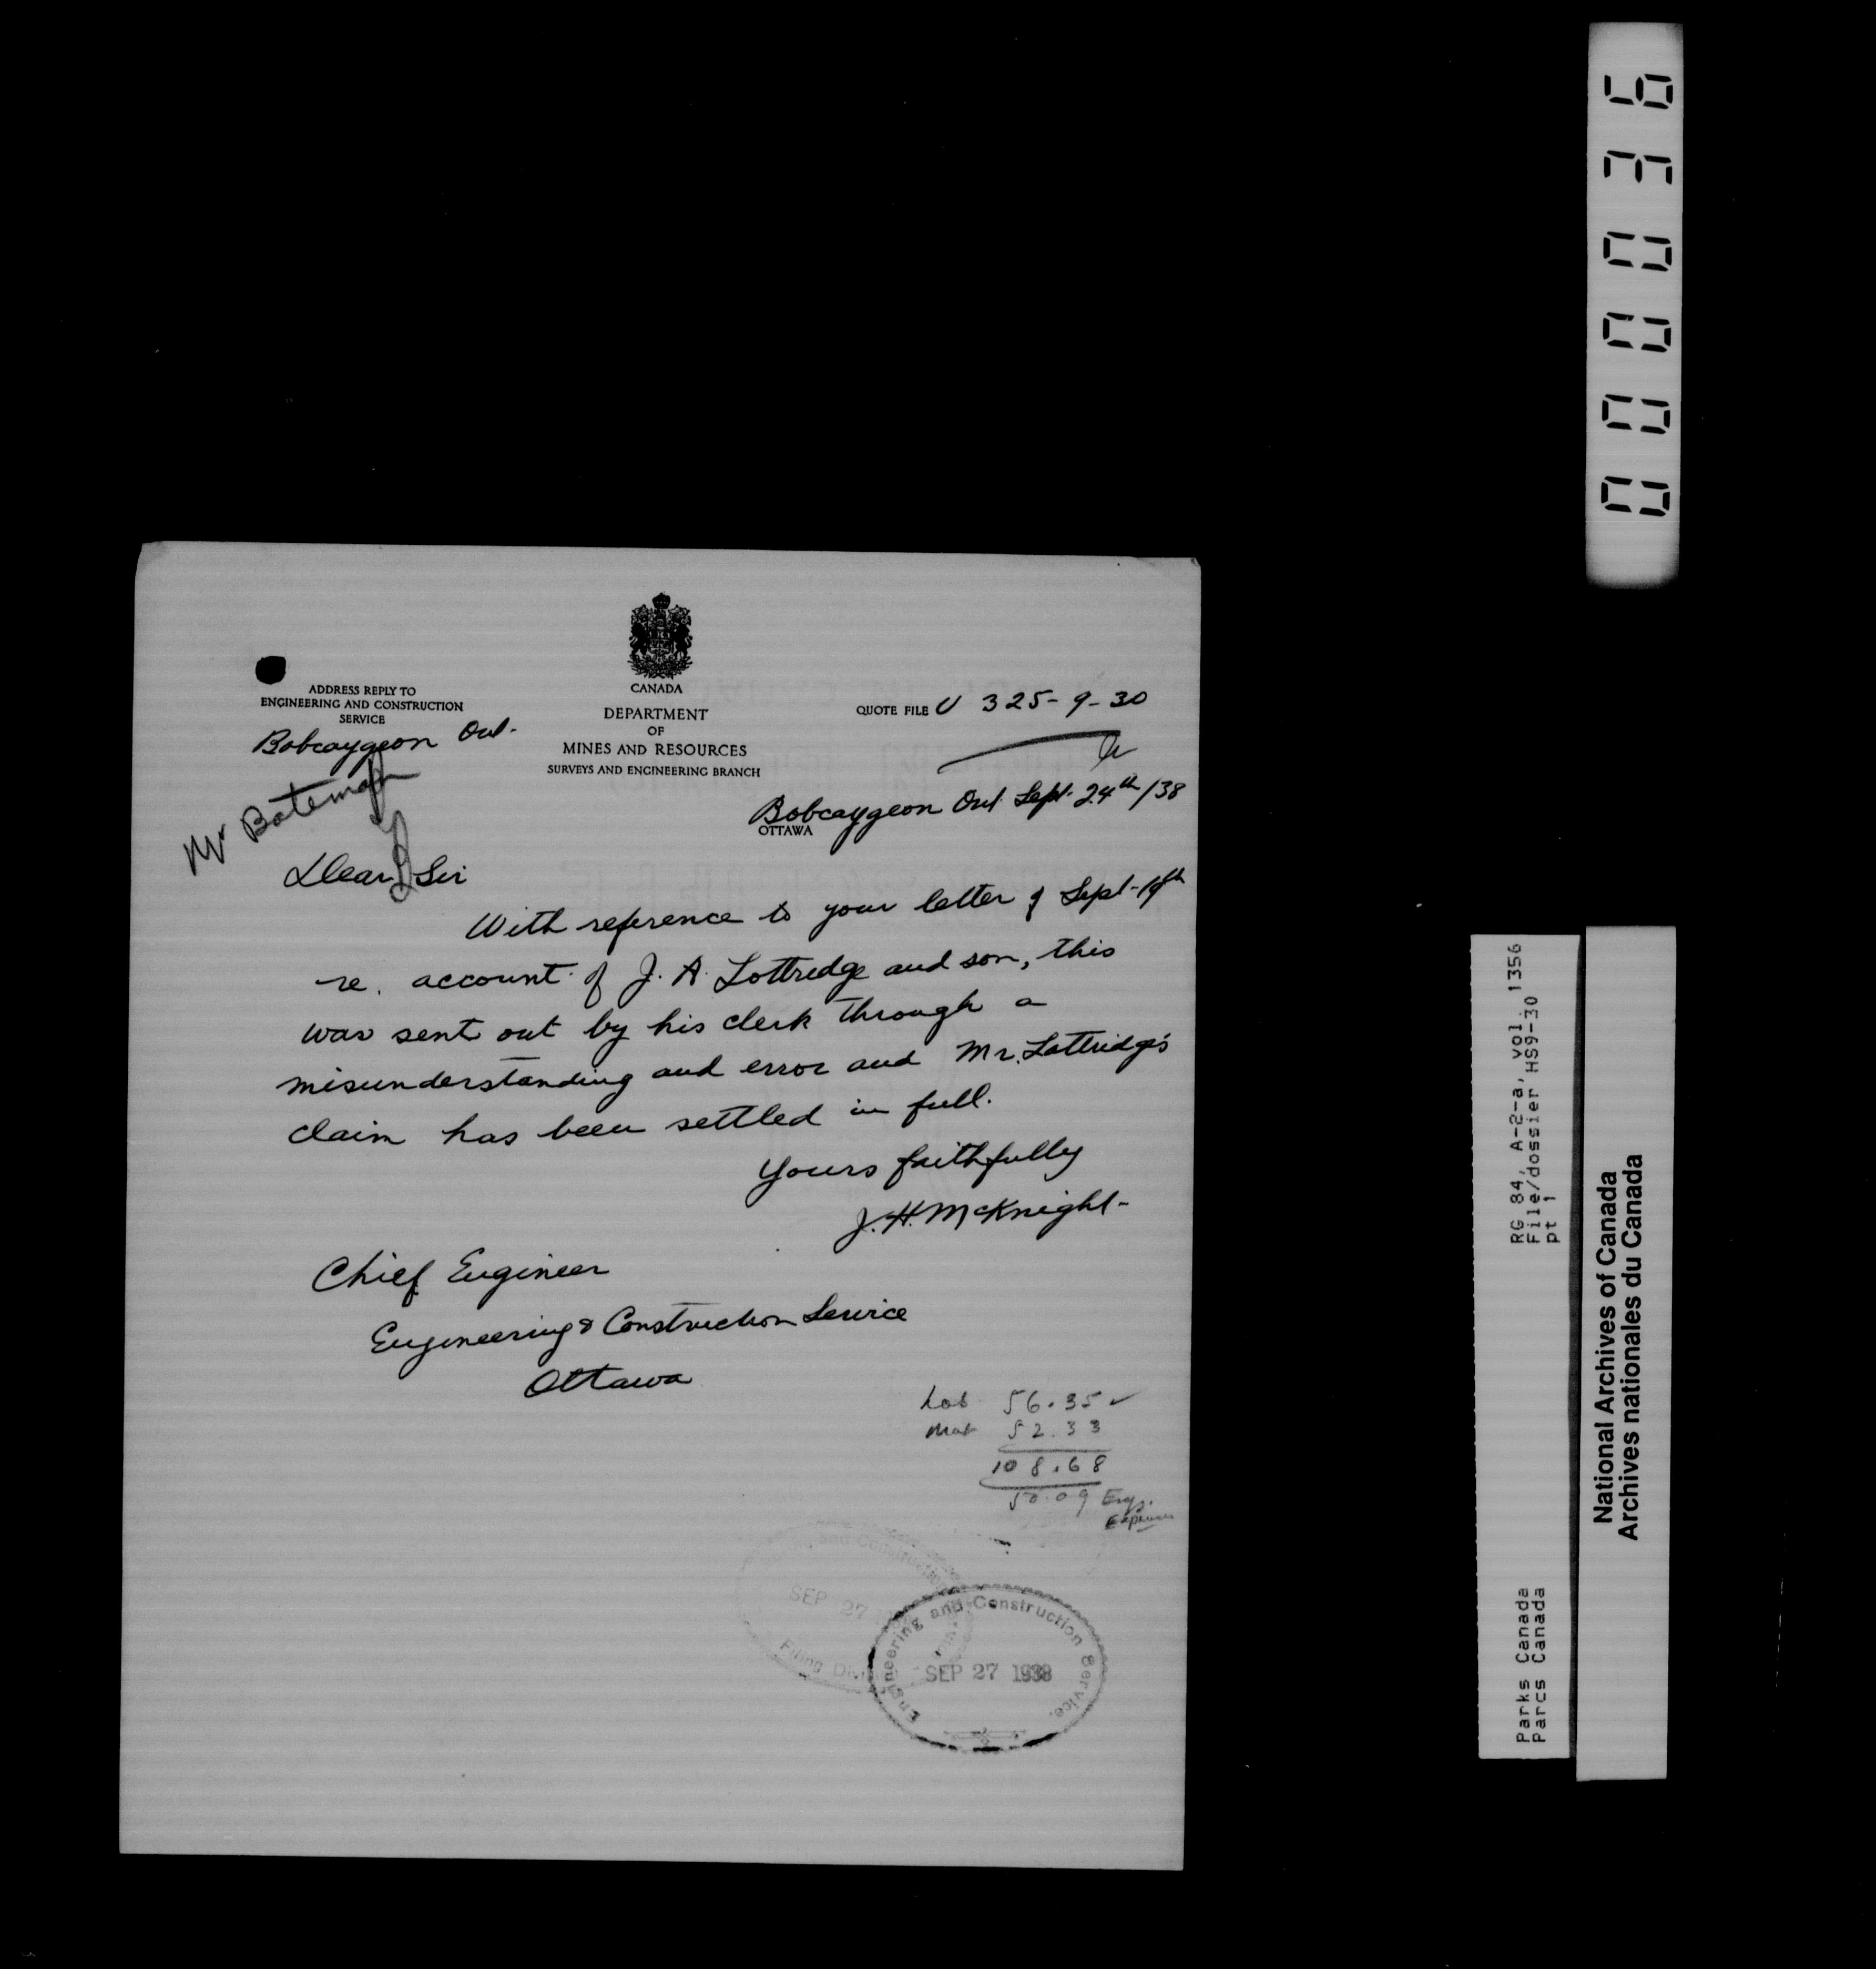 000076
CANADA
DEPARTMENT
OF
MINES AND RESOURCES
SURVEYS AND ENGINEERING BRANCH
ADDRESS REPLY TO
ENGINEERING AND CONSTRUCTION
SERVICE
Bobcaygeon Ont.
Mr Bateman
QUOTE FILE U 325-9-30
Bobcaygeon Ont Sept. 24th/38
OTTAWA
Dear Sir
With reference to your letter of Sept-19th
re. account of J. A. Lottridge and son, this
was sent out by his clerk through a
misunderstanding and error and Mr. Lottridge's
claim has been settled in full.
Yours faithfully
J. H. McKnight-
Chief Engineer
Engineering & Construction Service
Ottawa
Lab 56.35 ✓
Mat 52.33
108.68
50.09 Eng.
Expenses
and Construction
SEP 27
Filing
Engineering and Construction Service.
SEP 27 1938
RG 84, A-2-a, vol. 1356
File/dossier HS9-30
pt 1
Parks Canada
Parcs Canada
National Archives of Canada
Archives nationales du Canada